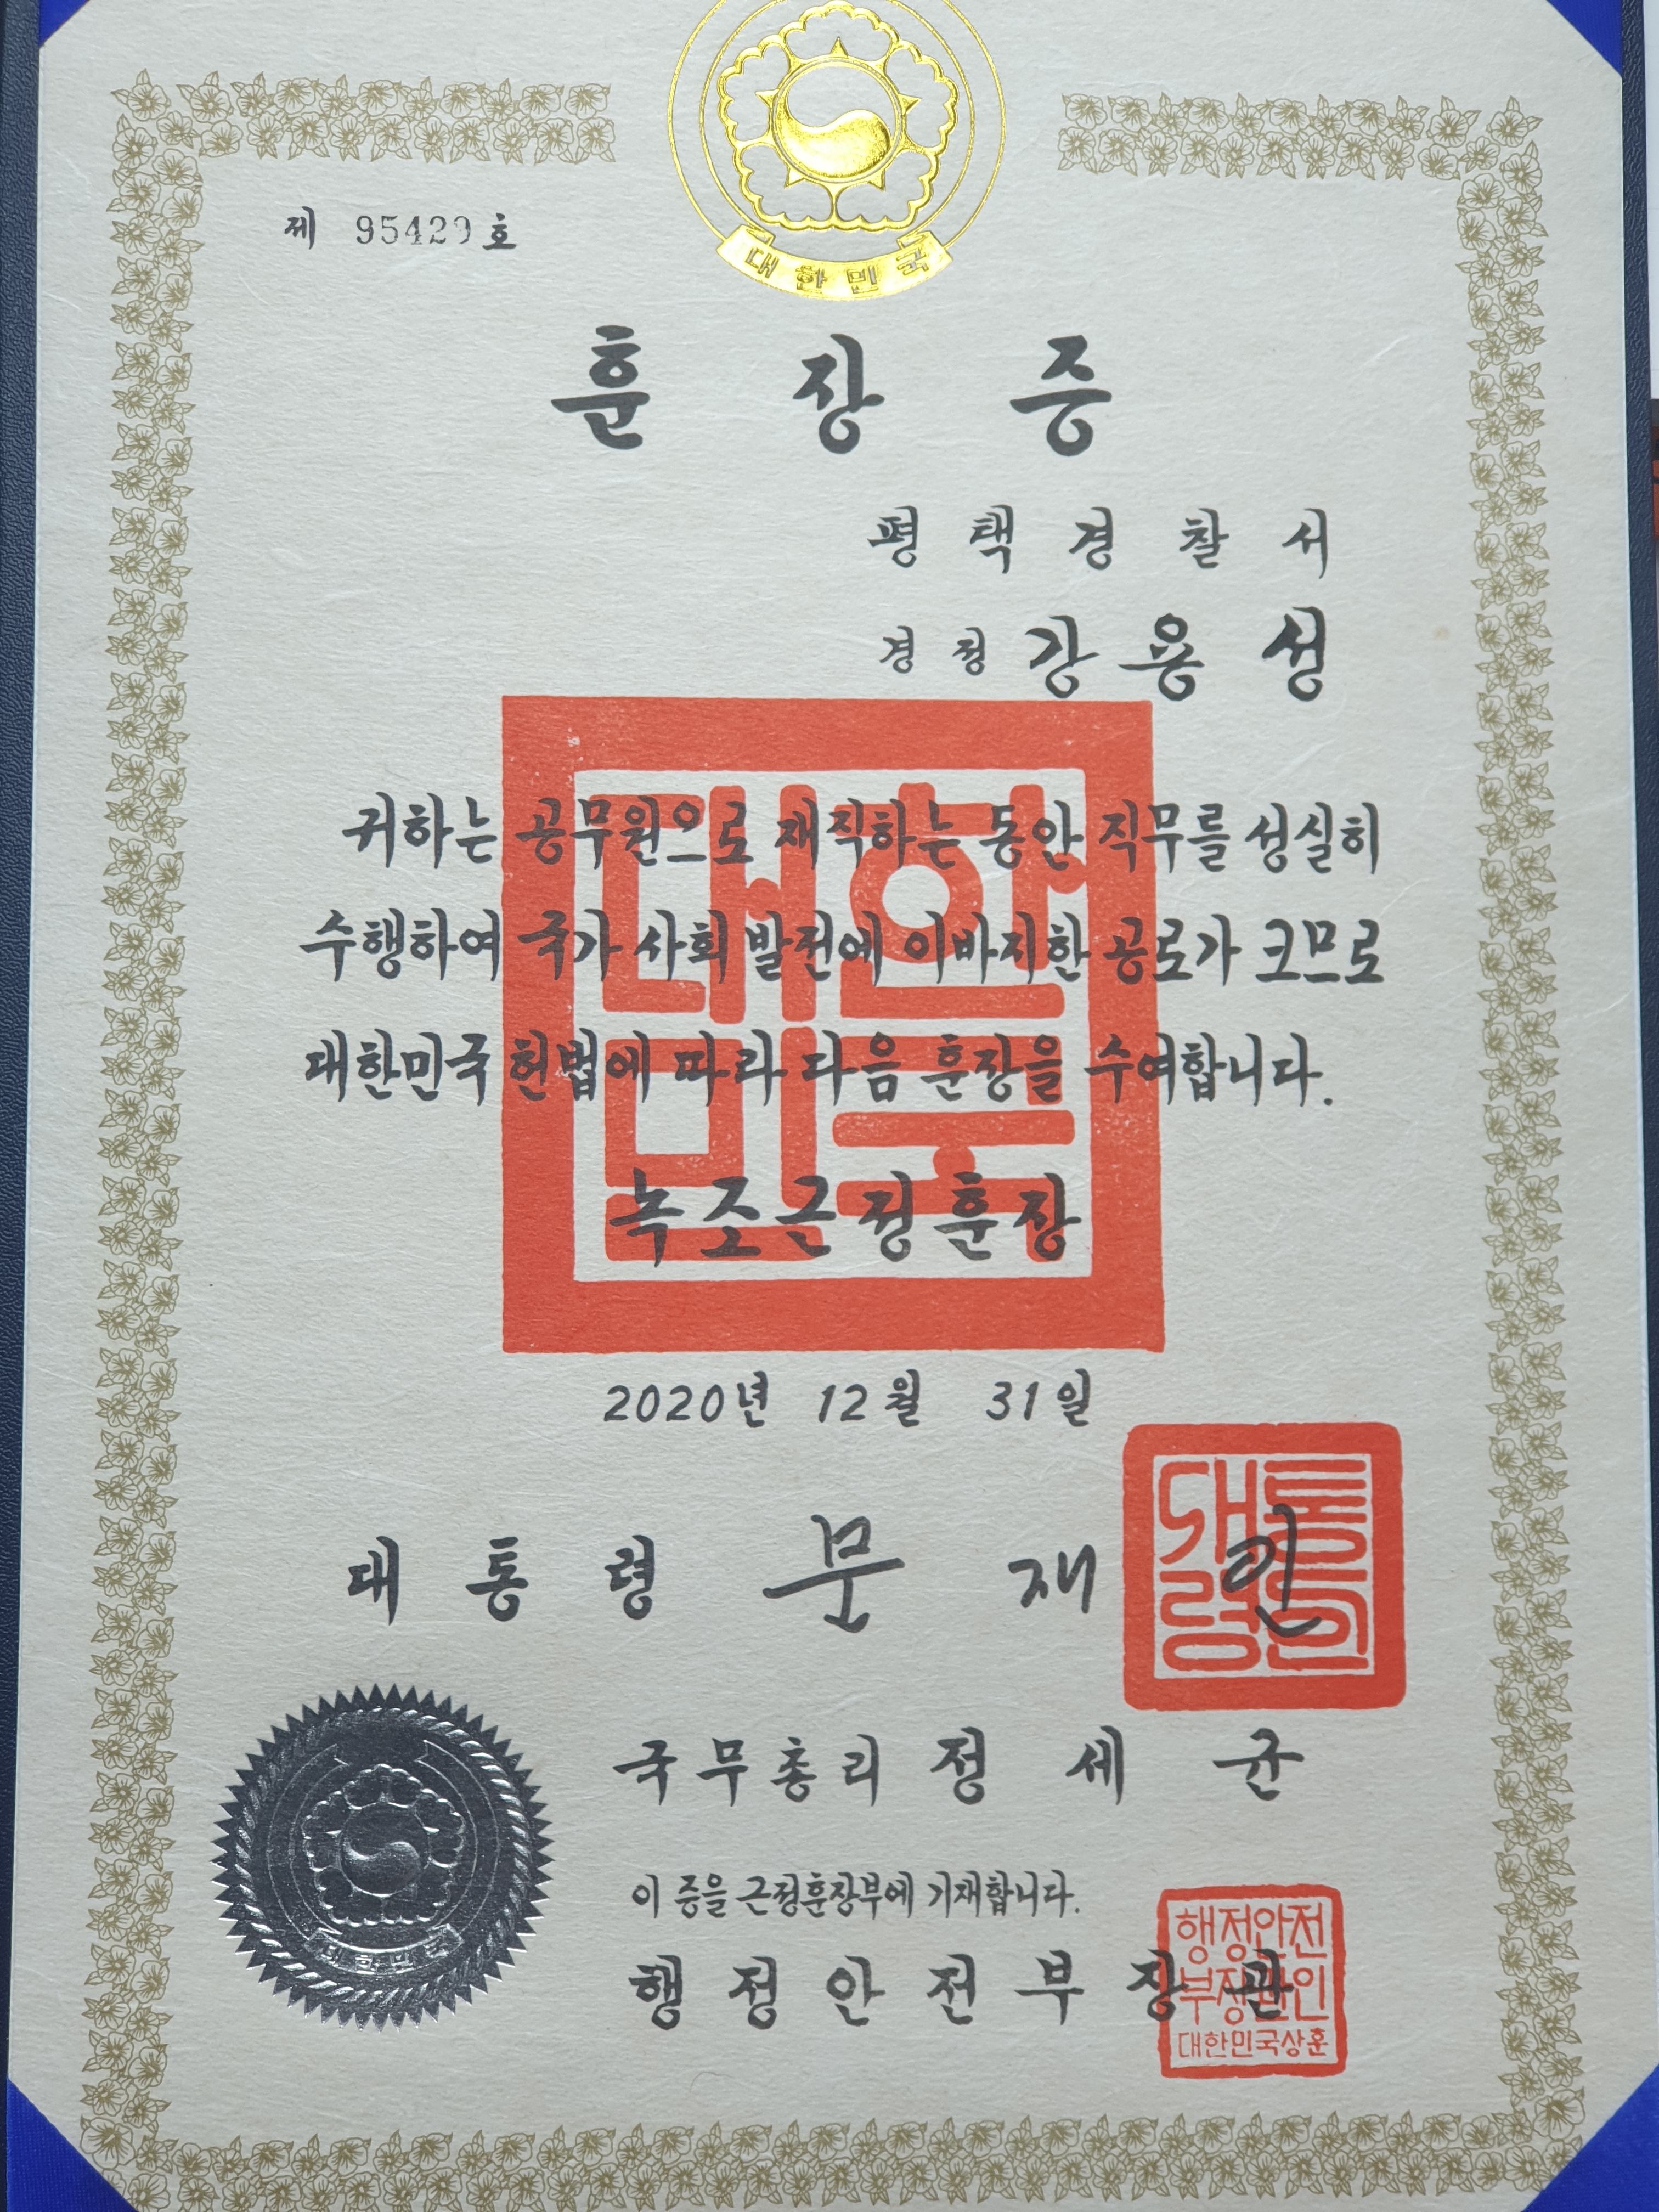 대한민국
제 95429 호
훈장증
평택경찰서
경정 강용성
귀하는 공무원으로 재직하는 동안 직무를 성실히
수행하여 국가 사회 발전에 이바지한 공로가 크므로
대한민국 헌법에 따라 다음 훈장을 수여합니다.
대한
민국
녹조근정훈장
2020년 12월 31일
대통령 문재인
대통
령인
국무총리 정세균
이 증을 근정훈장부에 기재합니다.
행정안전부장관
행정안전
부장관인
대한민국상훈
대한민국